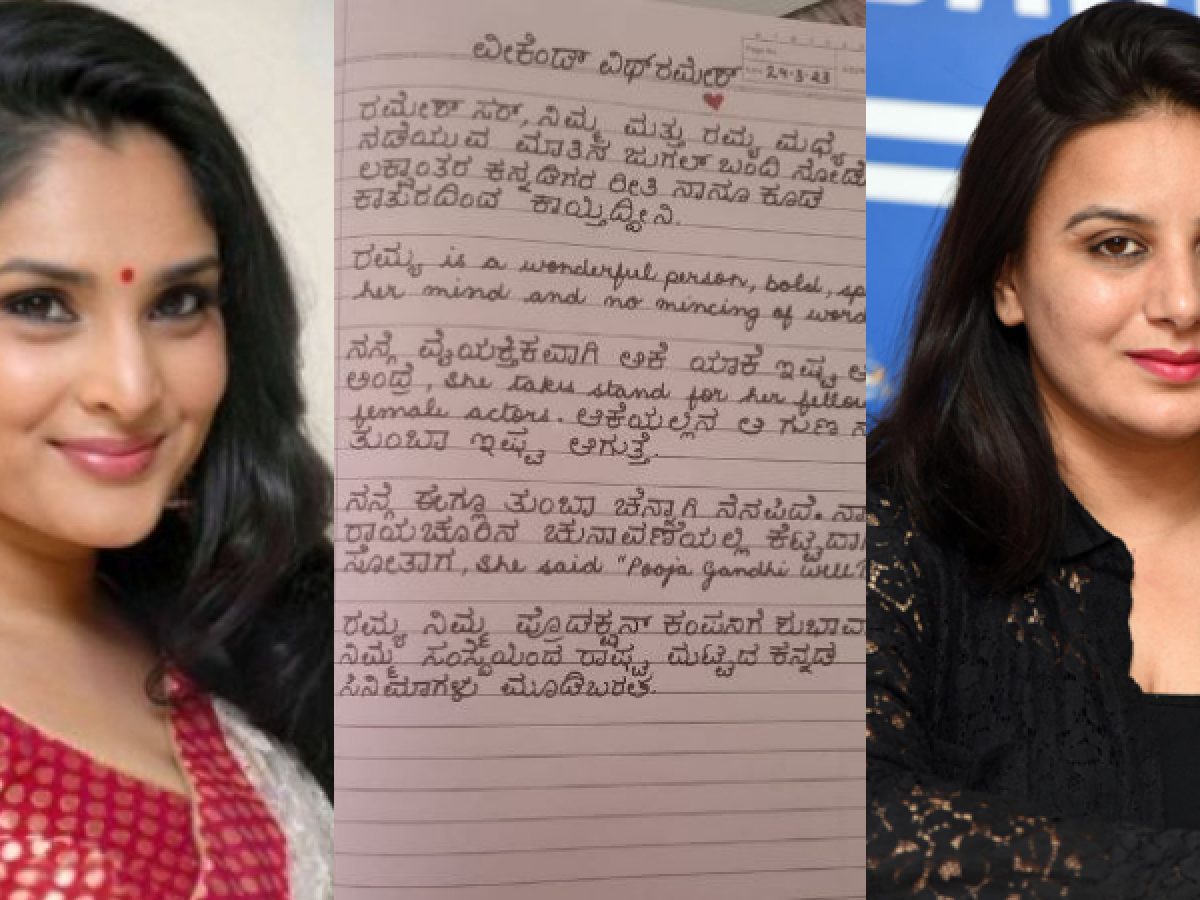 ವೀಕೆಂಡ್ ವಿಥ್ ರಮೇಶ್
Page No.
24-3-23
ರಮೇಶ್ ಸರ್, ನಿಮ್ಮ ಮತ್ತು ರಮ್ಯ ಮಧ್ಯೆ
ನಡೆಯುವ ಮಾತಿನ ಜುಗಲ್ ಬಂದಿ ನೋಡಲ
ಲಕ್ಷಾಂತರ ಕನ್ನಡಿಗರ ರೀತಿ ನಾನೂ ಕೂಡ
ಕಾತುರದಿಂದ ಕಾಯ್ತಿದ್ದೀನಿ.
ರಮ್ಯ is a wonderful person, bold, sp
her mind and no mincing of word
ನನ್ಗೆ ವೈಯಕ್ತಿಕವಾಗಿ ಆಕೆ ಯಾಕೆ ಇಷ್ಟ ಆ
ಅಂದ್ರೆ, she takes stand for her fellow
female actors. ಆಕೆಯಲ್ಲಿನ ಆ ಗುಣ ನ
ತುಂಬಾ ಇಷ್ಟ ಆಗುತ್ತೆ.
ನನ್ಗೆ ಈಗ್ಲೂ ತುಂಬಾ ಚೆನ್ನಾಗಿ ನೆನಪಿದೆ. ನಾ
ರಾಯಚೂರಿನ ಚುನಾವಣೆಯಲ್ಲಿ ಕೆಟ್ಟದಾಗಿ
ಸೋತಾಗ, she said "Pooja Gandhi well
ರಮ್ಯ ನಿಮ್ಮ ಪ್ರೊಡಕ್ಷನ್ ಕಂಪನಿಗೆ ಶುಭಾವ
ನಿಮ್ಮ ಸಂಸ್ಥೆಯಿಂದ ರಾಷ್ಟ್ರ ಮಟ್ಟದ ಕನ್ನಡ
ಸಿನಿಮಾಗಳು ಮೂಡಿಬರಲಿ.